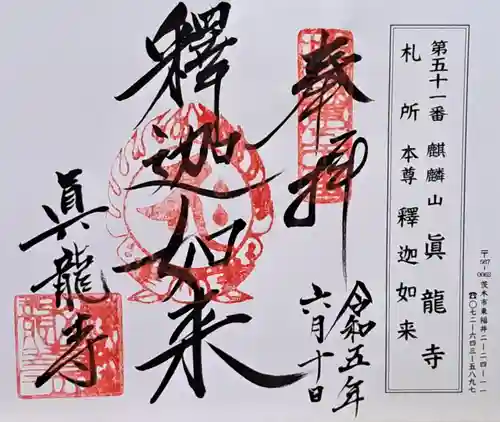 〒567-0062 茨木市東福井二-二四-一一
☎〇七二-六四三-五八九七
第五十一番 麒麟山 眞龍寺
札所本尊 釋迦如来
奉拝
令和五年
六月十日
釋迦如来
眞龍寺